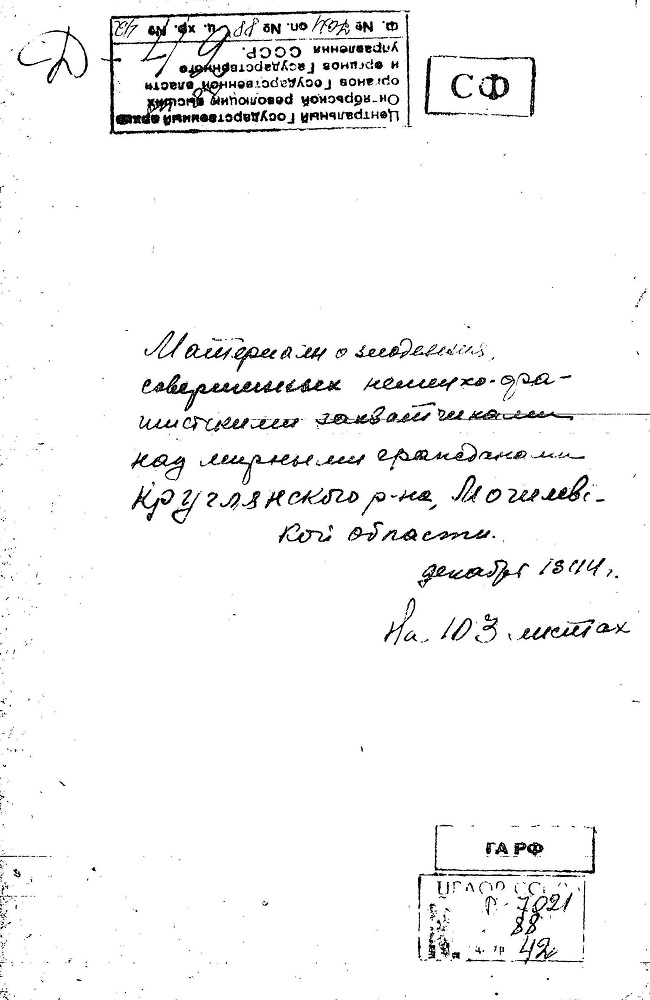 Ф. № 7021 оп. № 88 ц. хр. № 42
управления СССР.
и органов Государственного
органов Государственной власти
Октябрьской революции высших
Центральный Государственный архив
СФ
Материалы о злодеяниях,
совершенных немецко-фа-
шистскими захватчиками
над мирными гражданами
Круглянского р-на, Могилевс-
кой области.
декабрь 1944 г.
На 103 листах
ГА РФ
ЦГАОР СССР
Р-7021
88
42